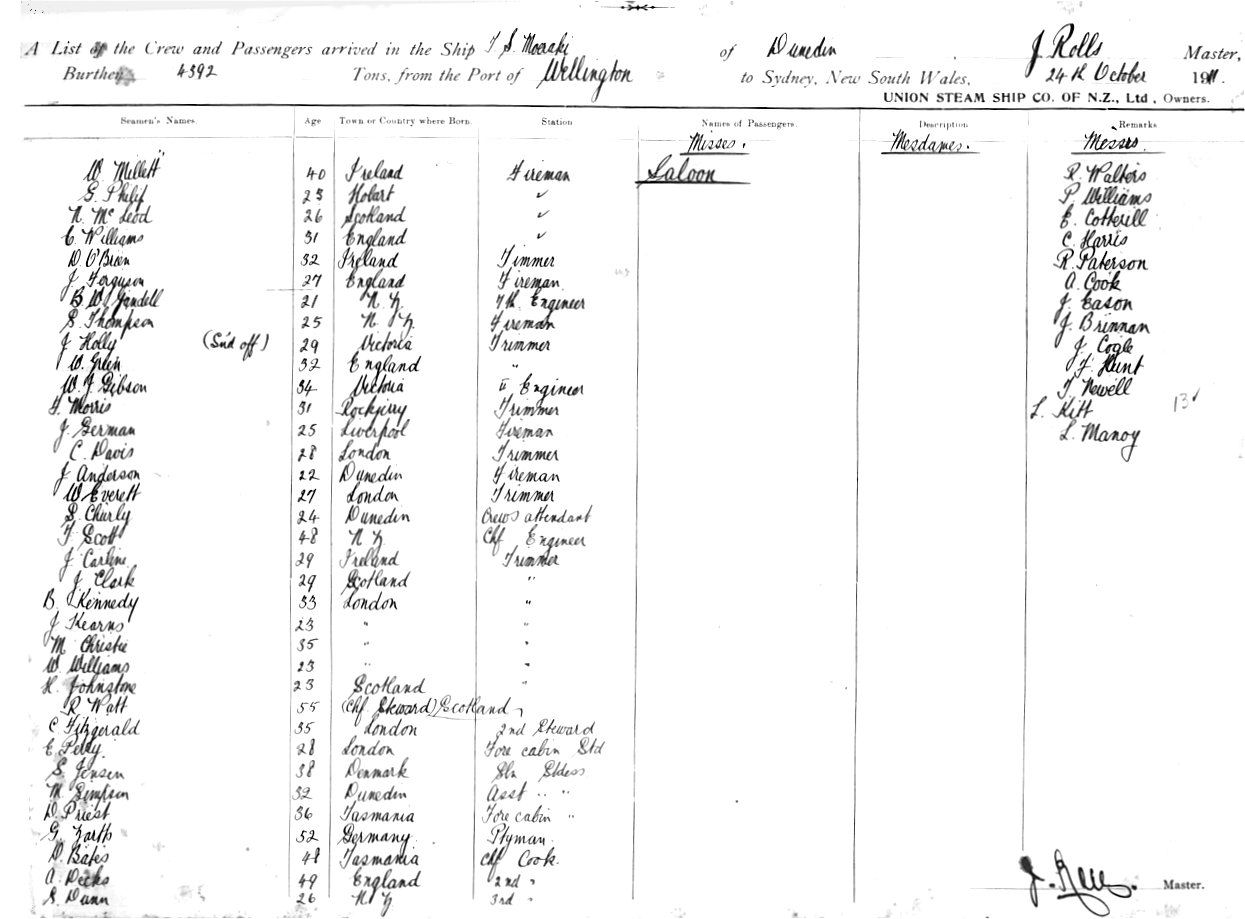 A List of the Crew and Passengers arrived in the Ship T S. Moeraki of Dunedin J Rolls Master,
Burthen 4392 Tons, from the Port of Wellington to Sydney, New South Wales, 24th October 1911.
UNION STEAM SHIP CO. OF N.Z., Ltd, Owners.
Seamen's Names. Age Town or Country where Born. Station Names of Passengers. Description Remarks
Misses. Mesdames. Messrs.
W Millett 40 Ireland Fireman Saloon R. Walters
G. Philip 23 Hobart ✓ P. Williams
N. McLeod 26 Scotland ✓ E. Cotterill
C. Williams 31 England ✓ C. Harris
D. O'Brien 32 Ireland Timmer R. Paterson
J Ferguson 27 England Fireman A. Cook
B W. Yandell 21 N Z. 7th Engineer J. Eason
S. Thompson 25 N Z. Fireman J. Brennan
J Holly (S'nd off) 29 Victoria Trimmer J. Cogle
W. Green 32 England " F. Hunt
W. J. Gibson 34 Victoria II Engineer T Newell
F. Morris 31 Trimmer L. Kitt 13 ✓
J. German 25 Liverpool Fireman L. Manoy
C. Davis 28 London Trimmer
J Anderson 22 Dunedin Fireman
W Everett 27 London Trimmer
S. 24 Dunedin Crews attendant
T. Scott 48 N Z Chf Engineer
J. Carline 29 Ireland Trimmer
J. Clark 29 Scotland "
B. Kennedy 33 London "
J Kearns 23 " "
M Christie 35 " "
W. Williams 23 " "
H. Johnstone 23 Scotland "
R Watt 55 (Chf Steward) Scotland
C Fitzgerald 35 London 2nd Steward
E Perry 28 London Fore cabin Std
S. Jensen 38 Denmark Sln Stdess
M. Simpson 32 Dunedin Asst " "
D. Priest 36 Tasmania Fore cabin "
G. 52 Germany. Ptyman.
D. Bates 48 Tasmania Chf Cook.
A. Decks 49 England 2nd "
S. Dunn 26 N Z 3rd "
J. Rolls. Master.